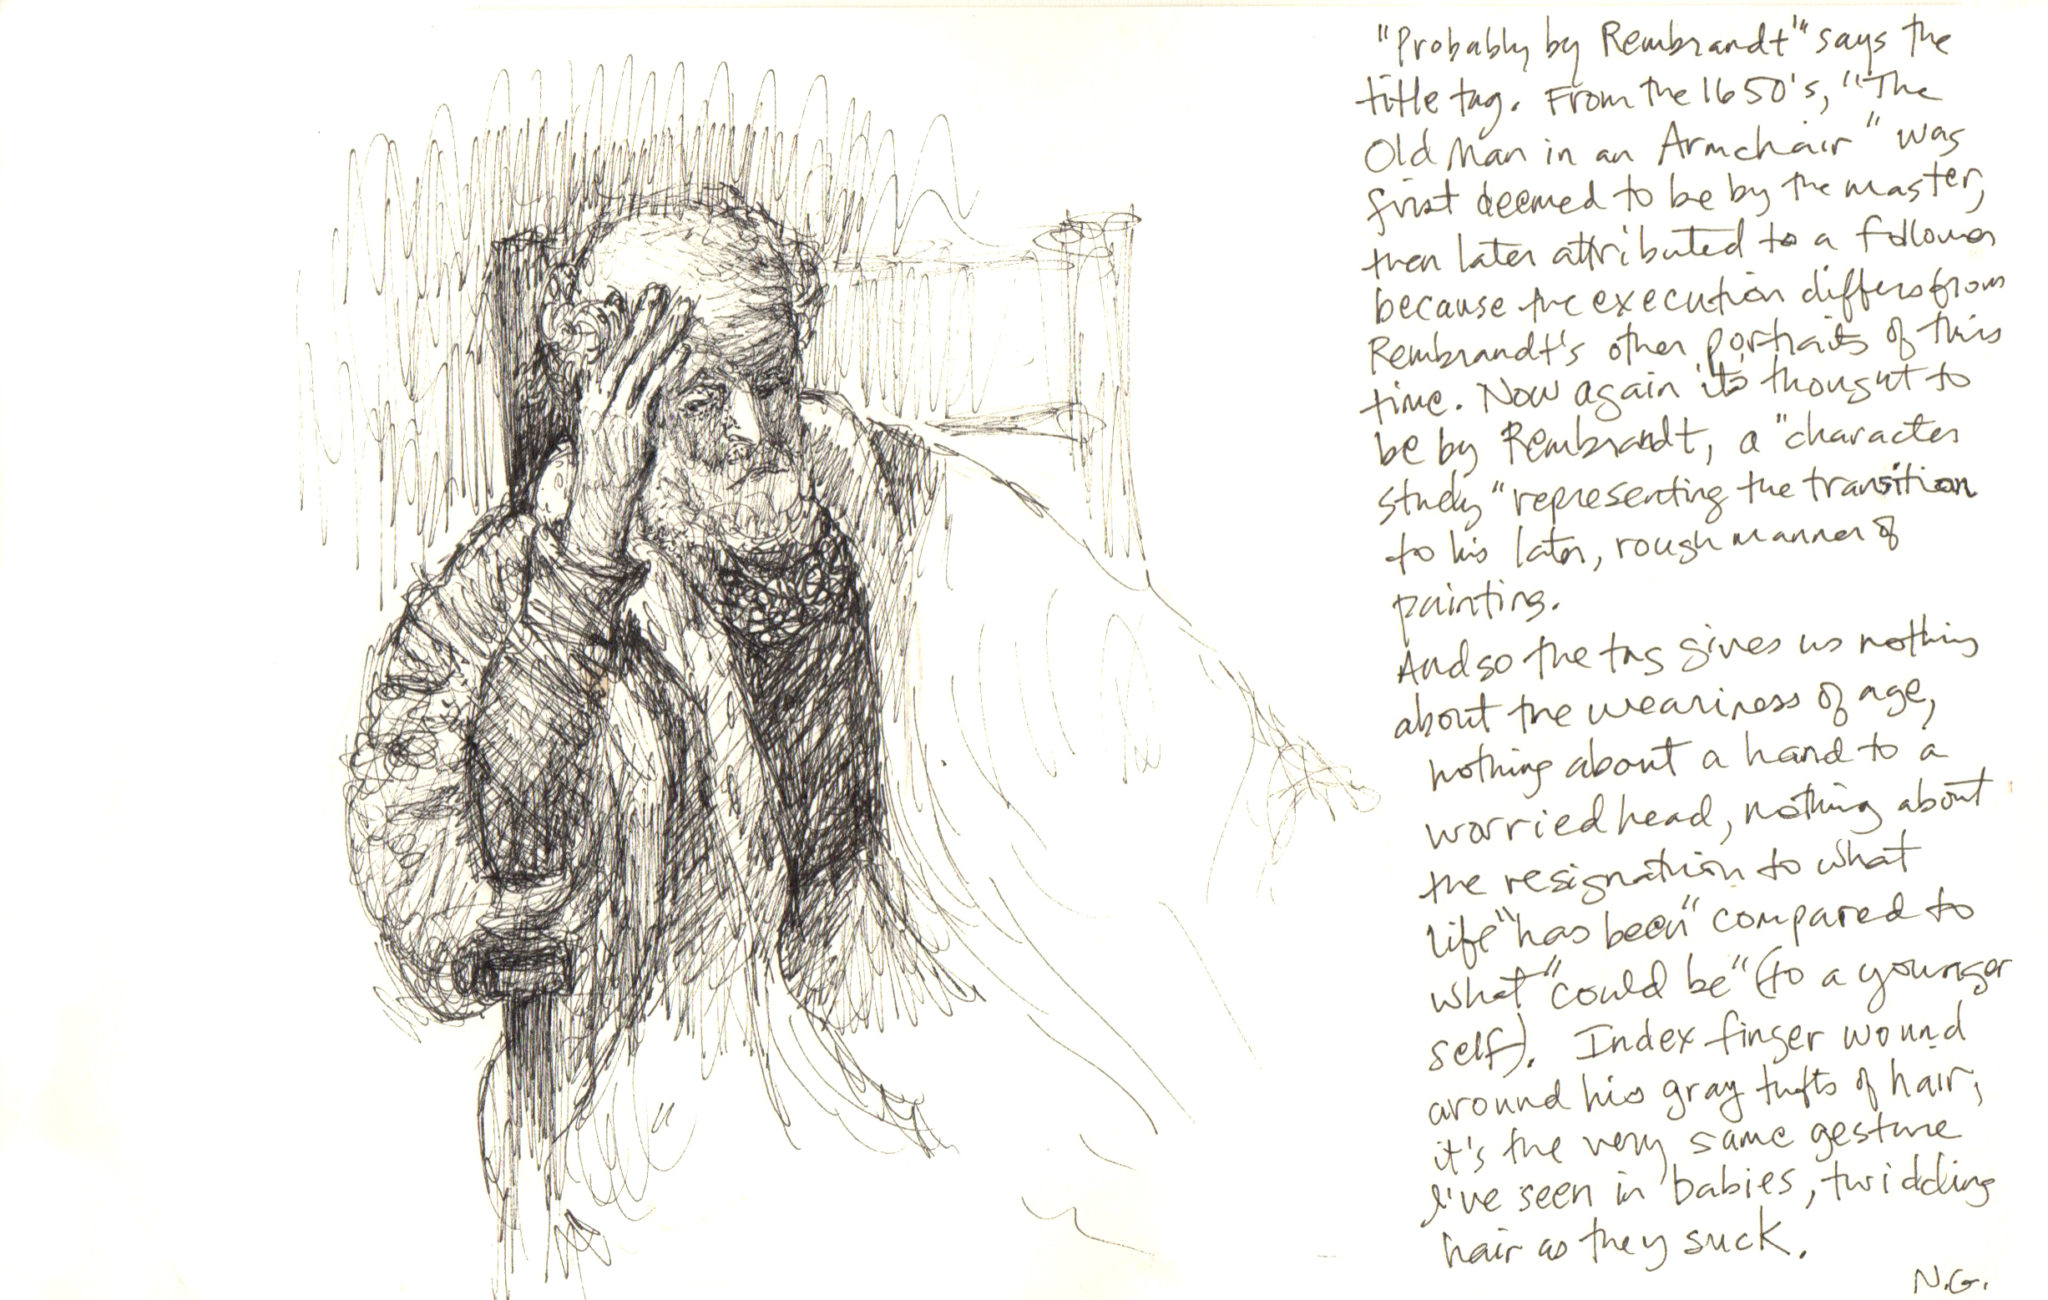 "Probably by Rembrandt" says the
title tag. From the 1650's, "The
Old Man in an Armchair" was
first deemed to be by the master,
then later attributed to a follower
because the execution differs from
Rembrandt's other portraits of this
time. Now again it's thought to
be by Rembrandt, a "character
study" representing the transition
to his later, rough manner of
painting.
And so the tag gives us nothing
about the weariness of age,
nothing about a hand to a
worried head, nothing about
the resignation to what
life "has been" compared to
what "could be" (to a younger
self). Index finger wound
around his gray tufts of hair,
it's the very same gesture
I've seen in babies, twiddling
hair as they suck.
N.G.